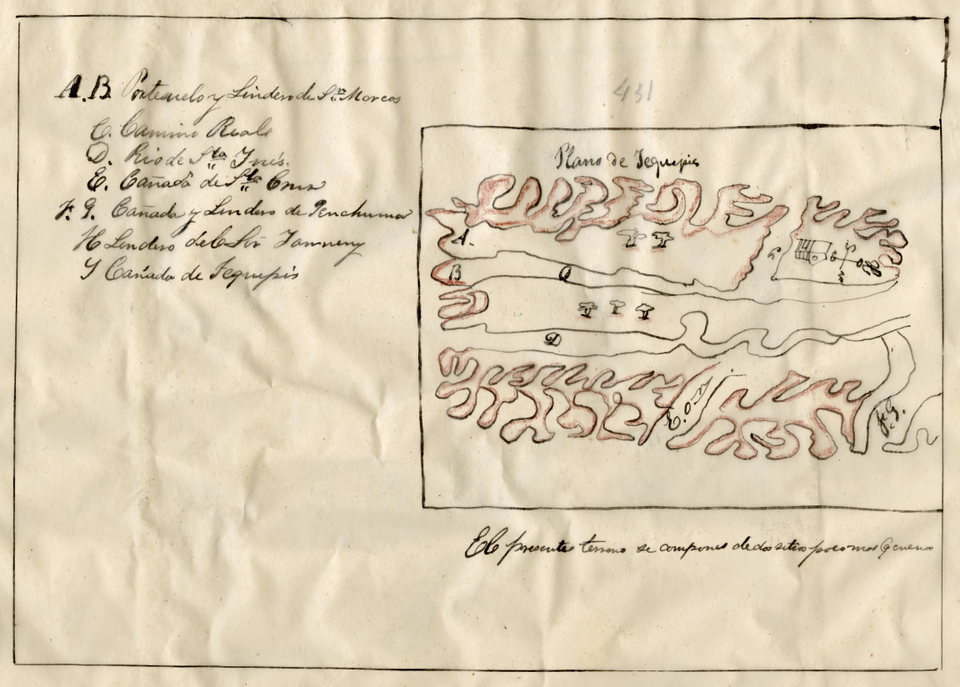 A. B. Portesuelo y Lindero de Sn Marcos
C. Camino Reale
D. Rio de Sta Ines.
E. Cañada de Sta Cruz
F. G. Cañada y Lindero de
H Lindero del Sor
Y Cañada de Tequepis
431
Plano de Tequepis
A.
B
C
D
E. o Y
F. G.
El presente terreno se compone de dos sitios poco mas